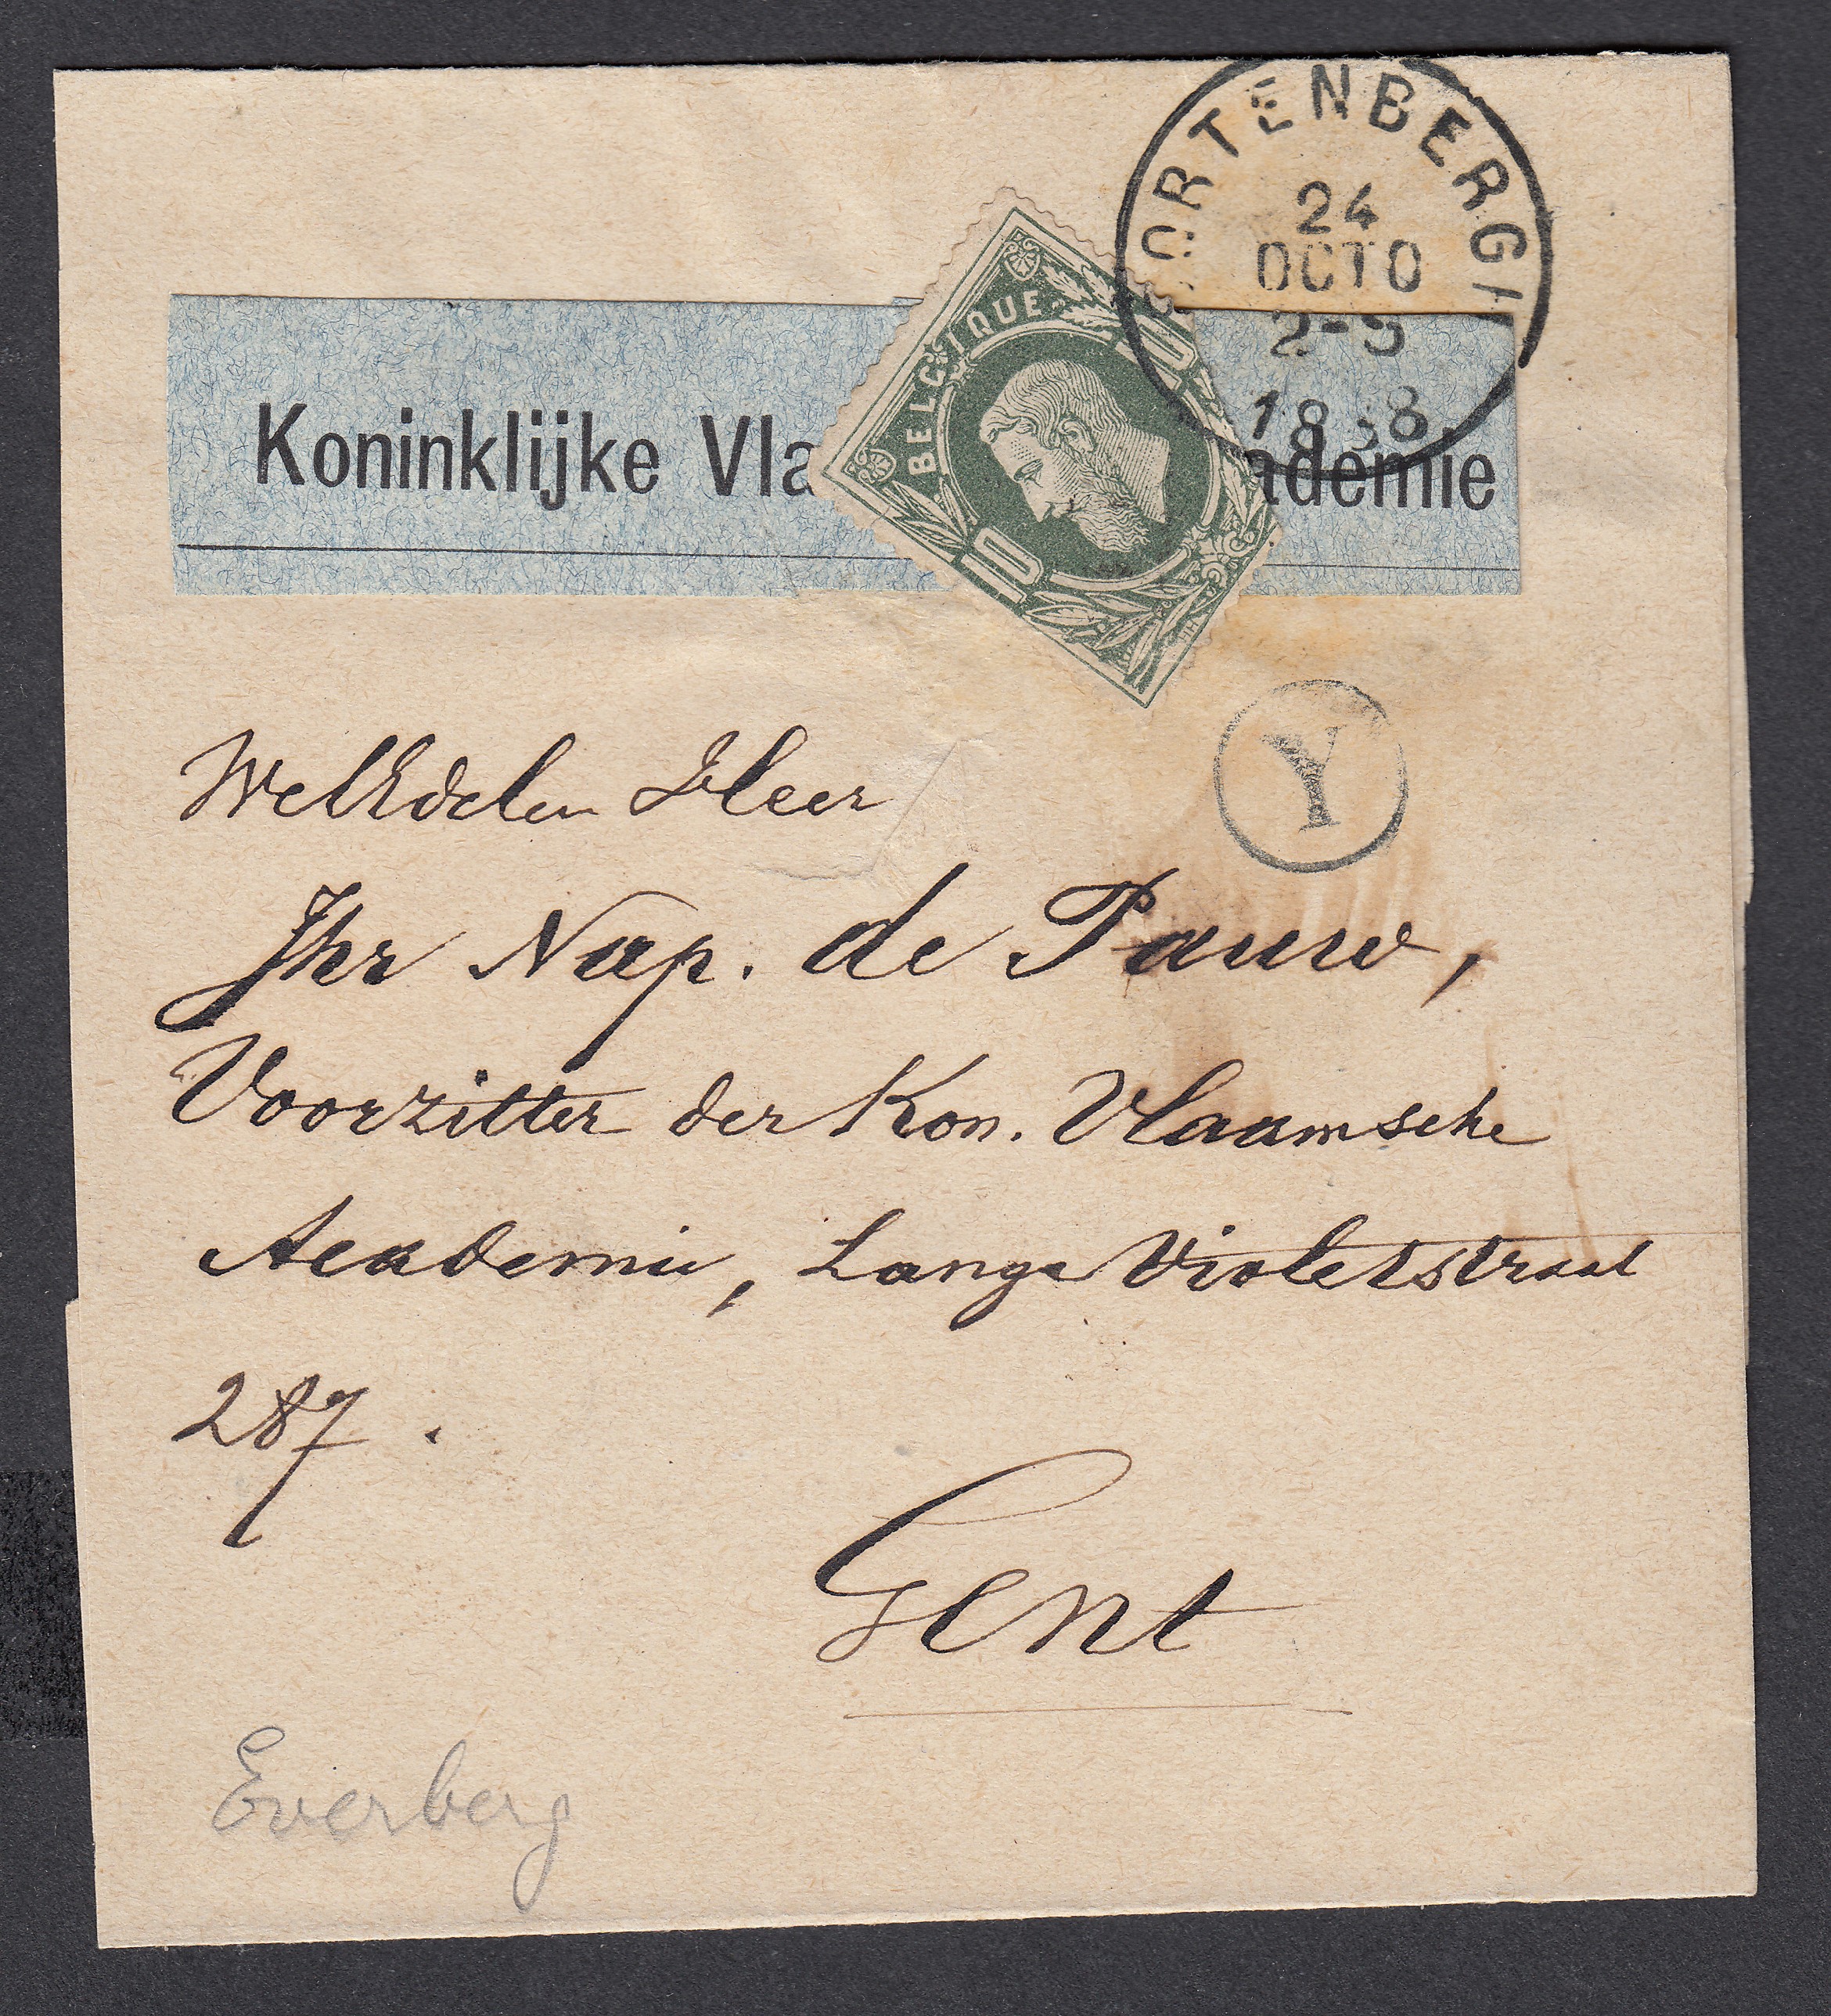 ORTENBERG
24
OCTO
2-5
1888
BELGIQUE
10
10
Koninklijke Vla ademie
Y
WelEdelen Heer
Jhr Nap. de Pauw,
Voorzitter der Kon. Vlaamsche
Academie, Lange Violetstraat
287.
Gent
Everberg